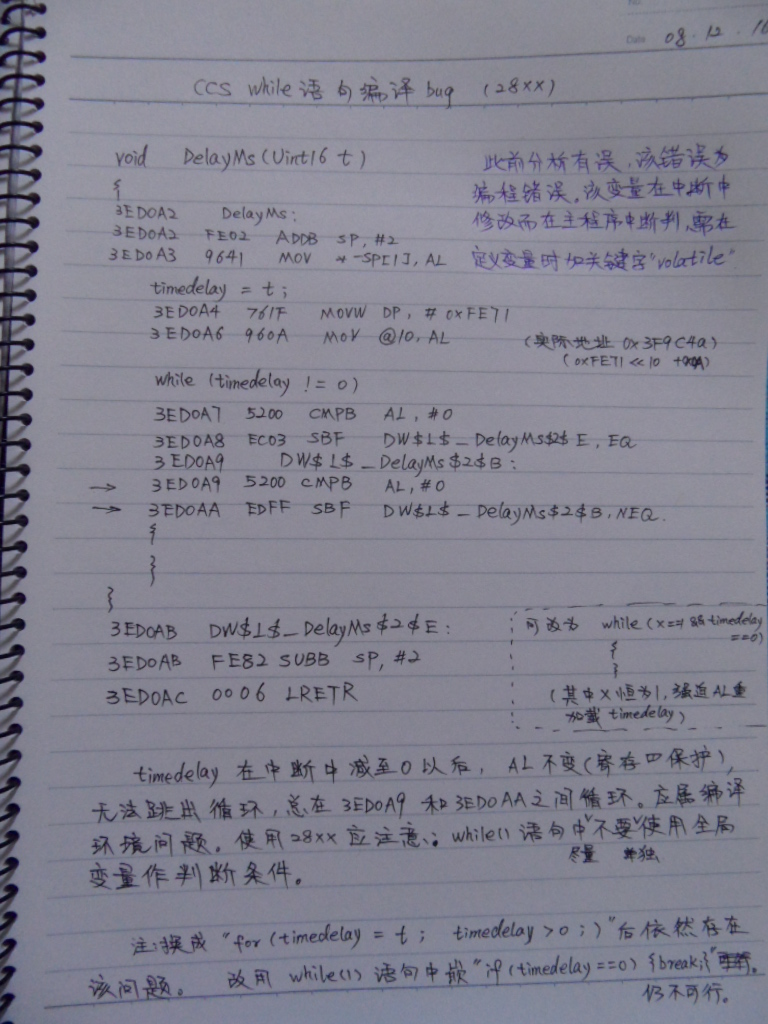 Date 08.12.16
CCS while语句编译bug (28xx)
void DelayMs(Uint16 t)
{
3ED0A2 DelayMs:
3ED0A2 FE02 ADDB SP, #2
3ED0A3 9641 MOV *-SP[1], AL
此前分析有误,该错误为
编程错误。该变量在中断中
修改而在主程序中断判,需在
定义变量时加关键字"volatile"
timedelay = t;
3ED0A4 761F MOVW DP, #0xFE71
3ED0A6 960A MOV @10, AL
(实际地址 0x3F9C4a)
(0xFE71 << 10 +A)
while (timedelay != 0)
3ED0A7 5200 CMPB AL, #0
3ED0A8 EC03 SBF DW$L$_DelayMs$2$E, EQ
3ED0A9 DW$L$_DelayMs$2$B:
→ 3ED0A9 5200 CMPB AL, #0
→ 3ED0AA EDFF SBF DW$L$_DelayMs$2$B, NEQ.
{
}
}
3ED0AB DW$L$_DelayMs$2$E:
3ED0AB FE82 SUBB SP, #2
3ED0AC 0006 LRETR
可改为 while (x==1 && timedelay
==0)
{
}
(其中x恒为1,强迫AL重
加载timedelay)
timedelay 在中断中减至0以后,AL不变(寄存四保护),
无法跳出循环,总在3ED0A9和3ED0AA之间循环。应属编译
环境问题。使用28xx应注意:while()语句中不要使用全局
尽量 单独
变量作判断条件。
注:换成"for(timedelay = t; timedelay > 0;)"后依然存在
该问题。 改用 while(1) 语句中嵌"if(timedelay==0) {break;}"
仍不可行。